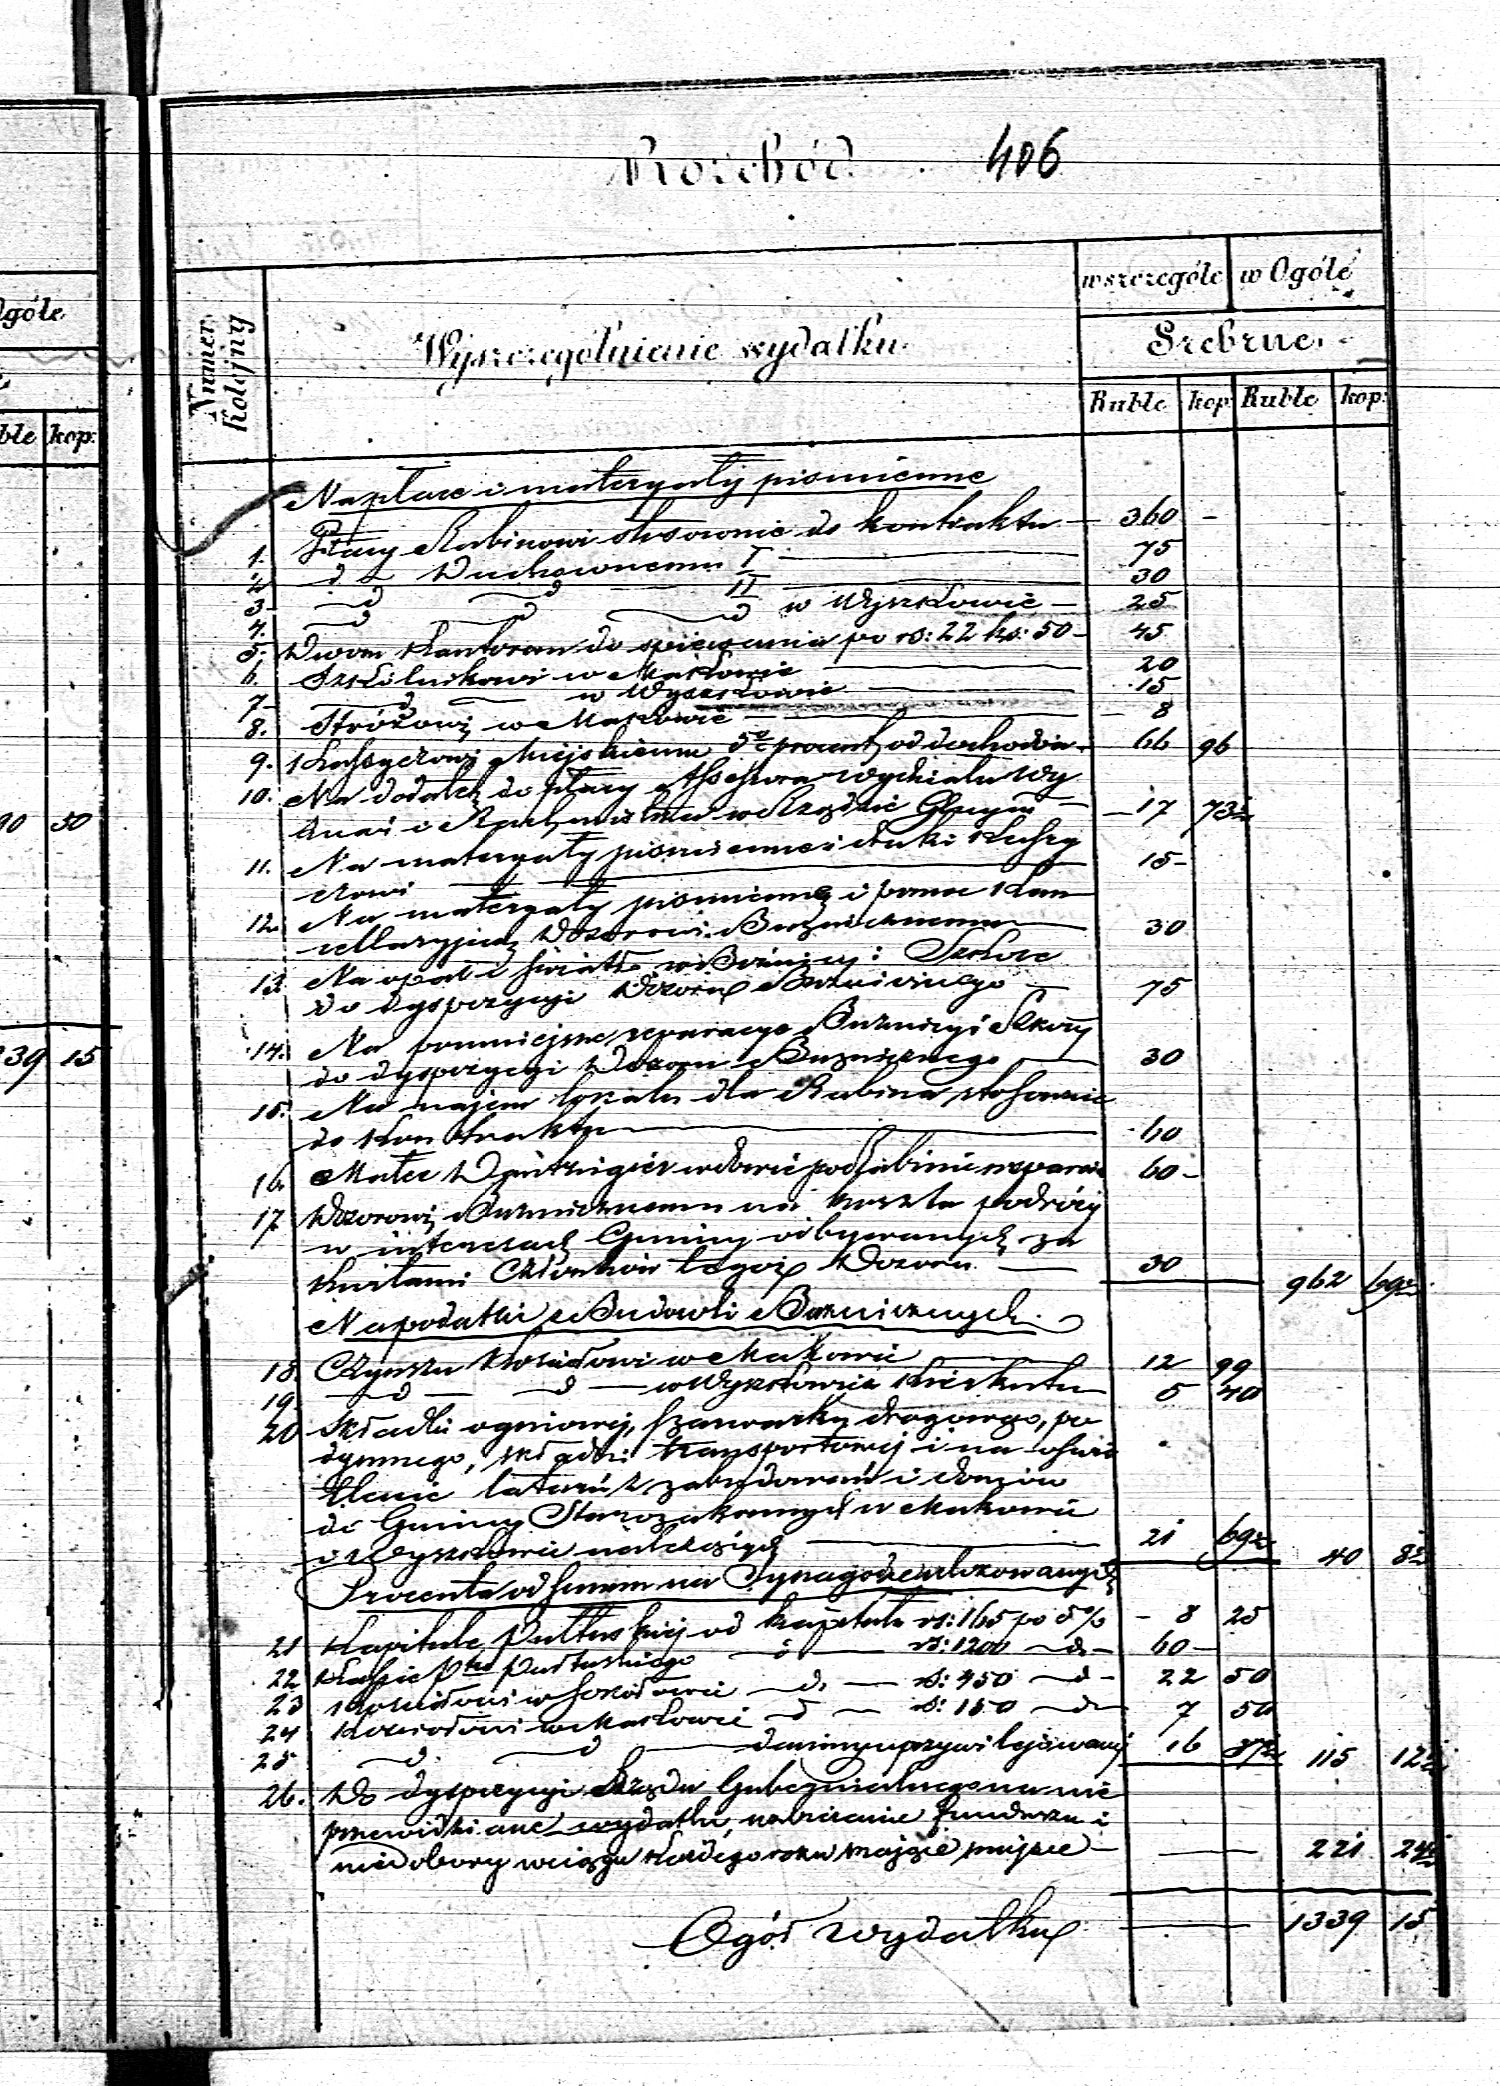 Ogóle
ble kop:
90 50
239 15
Rozchód 406
Numer Kolejny
Wyszczególnienie wydatku
w szczególe w Ogóle
Srebrne
Ruble kop Ruble kop:
Na płace i materyały piśmienne
1. Płacy Rabinowi stosownie do kontraktu — 360 -
2. d Duchownemu I — 75
3. d d II — 30
4. d d d w Wyszkowie — 25
5. Dwom Kantorom do śpiewania po rs: 22 ko: 50 - 45
6. Szkólnikowi w Makowie — 20
7. d — w Wyszkowie — 15
8. Stróżowi w Makowie — 8
9. Kassyerowi Miejskiemu 5% procent od dochodów - 66 96
10. Na dodatek do płacy Assessora Wydziału Wy
znań i w Rządzie Gbnym — 17 73½
11. Na materyały piśmienne i druki Kassy
erowi — 15 -
12. Na materyały piśmienne i pomoc Kan
cellaryjną Dozorowi Bużniczemu — 30
13. Na opał i światło w Bóżnicy i Szkole
do dyspozycyi Dozoru Bużniczego — 75
14. Na pomniejsze reparacye Bużnicy i Szkoły
do dyspozycyi Dozoru Bużniczego — 30
15. Na najem lokalu dla Rabina stosownie
do Kontraktu — 60
16. wdowie po Rabinie wsparcie 60 -
17 Dozorowi Bużniczemu na koszta podróży
w interesach Gminy odbywanych za
kwitami Członków tegoż Dozoru — 30 962 69½
Na podatki z Budowli Bużniczych
18. Czynszu Kościołowi w Makowie — 12 99
19. d — d — w Wyszkowie — 5 40
20 Składki ogniowej, szarwarku drogowego, po
dymnego, składki transportowej i na oświe
tlenie latarń z zabudowań i domów
do Gminy Starozakonnych w Makowie
i Wyszkowie należących — 21 69½ 40 8½
Procenta od summ na Synagodze ulokowanych
21 Kapitule Pułtuskiej od kapitału rs: 165 po 5% - 8 25
22 Kassie Ptu Pułtuskiego — d — rs: 1200 — d - 60 -
23 Kościołowi w — d. — rs: 450 — d - 22 50
24 Kościołowi w Makowie — d — rs: 150 — d - 7 50
25 d. d — daniny uprzywilejowanej 16 87½ 115 12½
26. Do dyspozycyi Rządu Gubernialnego na nie
przewidziane wydatki, nabieranie funduszu i
niedobory w ciągu każdego roku miejsce — 221 24½
Ogół wydatku — 1339 15